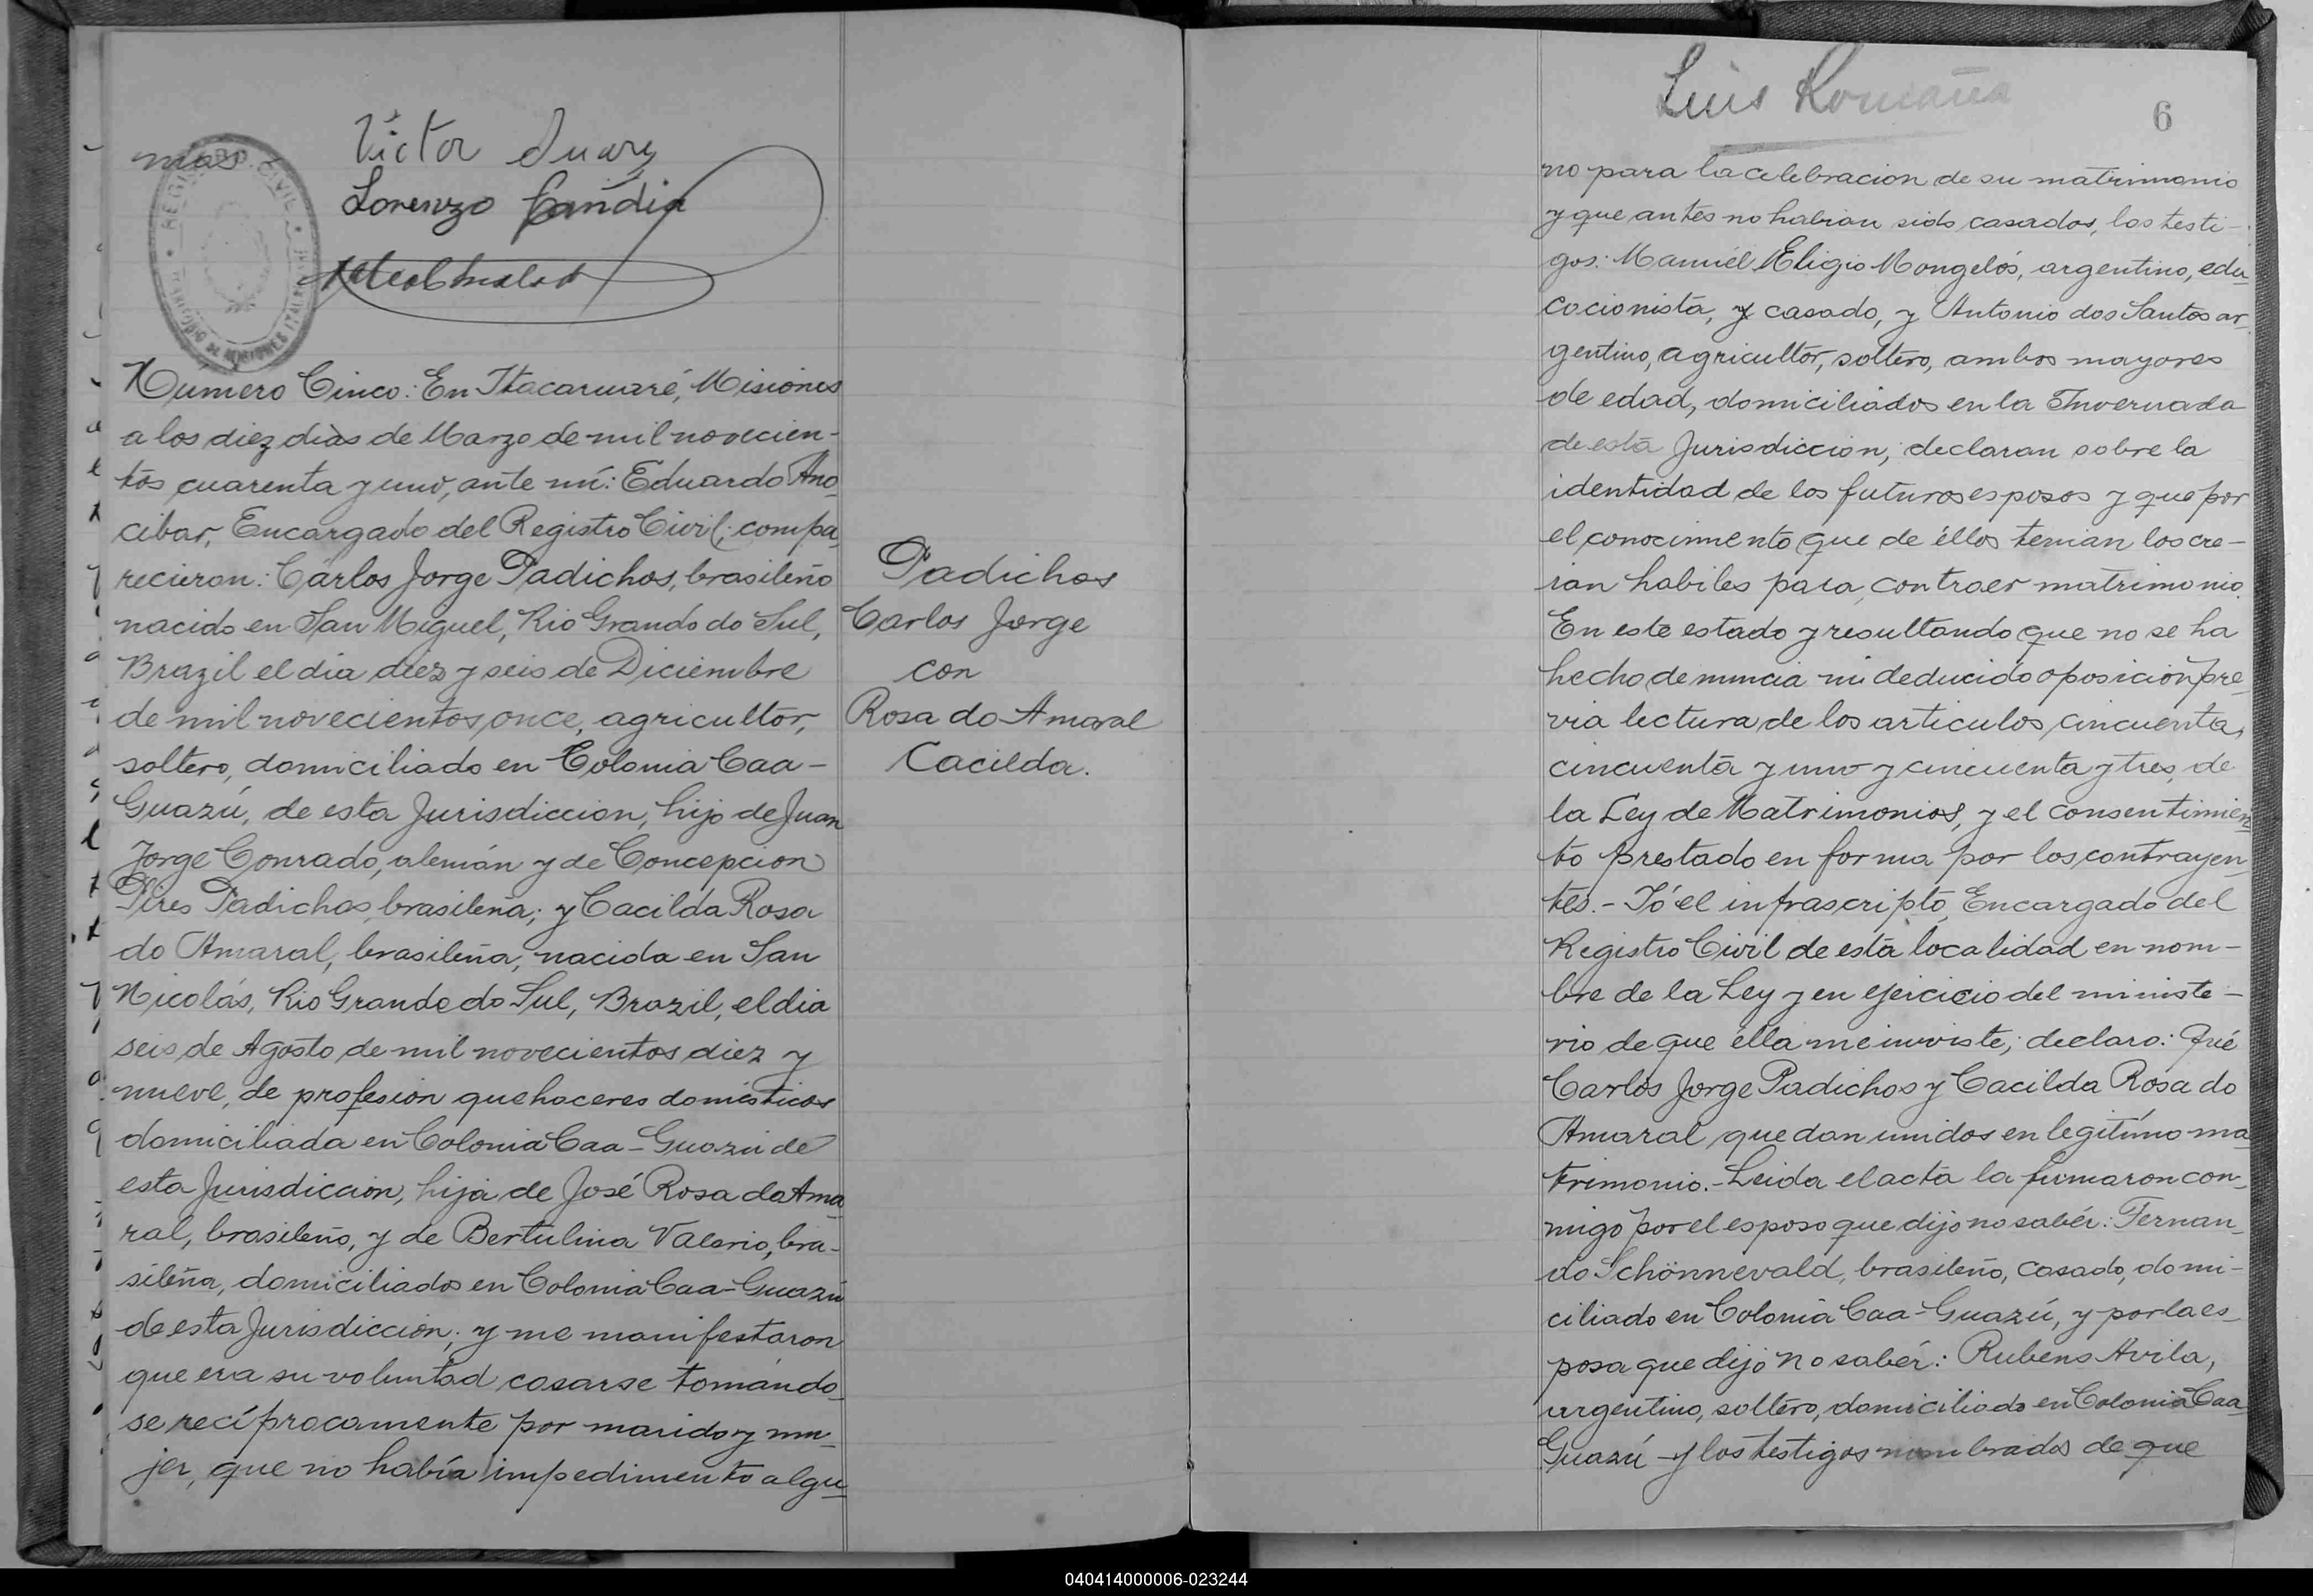 mas
Victor Suarez
Lorenzo Gandia
REGISTRO CIVIL
TERRITORIO DE MISIONES
Numero Cinco: En Itacaruaré, Misiones
a los diez dias de Marzo de mil novecien-
tos cuarenta y uno, ante mi: Eduardo Ano-
cibar, Encargado del Registro Civil; compa-
recieron: Carlos Jorge Padichos, brasileño
nacido en San Miguel, Rio Grando do Sul,
Brazil el dia diez y seis de Diciembre
de mil novecientos once, agricultor,
soltero, domiciliado en Colonia Caa-
Guazú, de esta Jurisdiccion, hijo de Juan
Jorge Conrado, alemán y de Concepcion
Pires Padichos, brasileña; y Cacilda Rosa
do Amaral, brasileña, nacida en San
Nicolás, Rio Grande do Sul, Brazil, el dia
seis de Agosto de mil novecientos diez y
nueve, de profesion quehaceres domésticos
domiciliada en Colonia Caa-Guazú de
esta Jurisdiccion, hija de José Rosa do Ama-
ral, brasileño, y de Bertulina Valerio, bra-
sileña, domiciliados en Colonia Caa-Guazú
de esta Jurisdiccion; y me manifestaron
que era su voluntad casarse tomándo-
se recíprocamente por marido y mu-
jer, que no había impedimento algu-
Padichos
Carlos Jorge
con
Rosa do Amaral
Cacilda.
Luis Romaña
6
no para la celebracion de su matrimonio
y que antes no habian sido casados, los testi-
gos: Manuél Eligio Mongelós, argentino, edu-
cocionista, y casado, y Antonio dos Santos ar-
gentino, agricultor, soltero, ambos mayores
de edad, domiciliados en la Invernada
de esta Jurisdiccion; declaran sobre la
identidad de los futuros esposos y que por
el conocimiento que de éllos tenian los cre-
ian habiles para contraer matrimonio.
En este estado y resultando que no se ha
hecho denuncia ni deducido oposicion pre-
via lectura de los articulos cincuenta,
cincuenta y uno y cincuenta y tres, de
la Ley de Matrimonios, y el consentimien-
to prestado en forma por los contrayen-
tes.- Yó el infrascripto, Encargado del
Registro Civil de esta localidad en nom-
bre de la Ley y en ejercicio del ministe-
rio de que élla me inviste; declaro: Qué
Carlos Jorge Padichos y Cacilda Rosa do
Amaral quedan unidos en legítimo ma-
trimonio.- Leida el acta la firmaron con-
migo por el esposo que dijo no sabér: Fernan-
do Schönnevald, brasileño, casado, domi-
ciliado en Colonia Caa-Guazú, y por la es-
posa que dijo no sabér: Rubens Avila,
argentino, soltero, domiciliado en Colonia Caa
Guazú - y los testigos nombrados de que
040414000006-023244